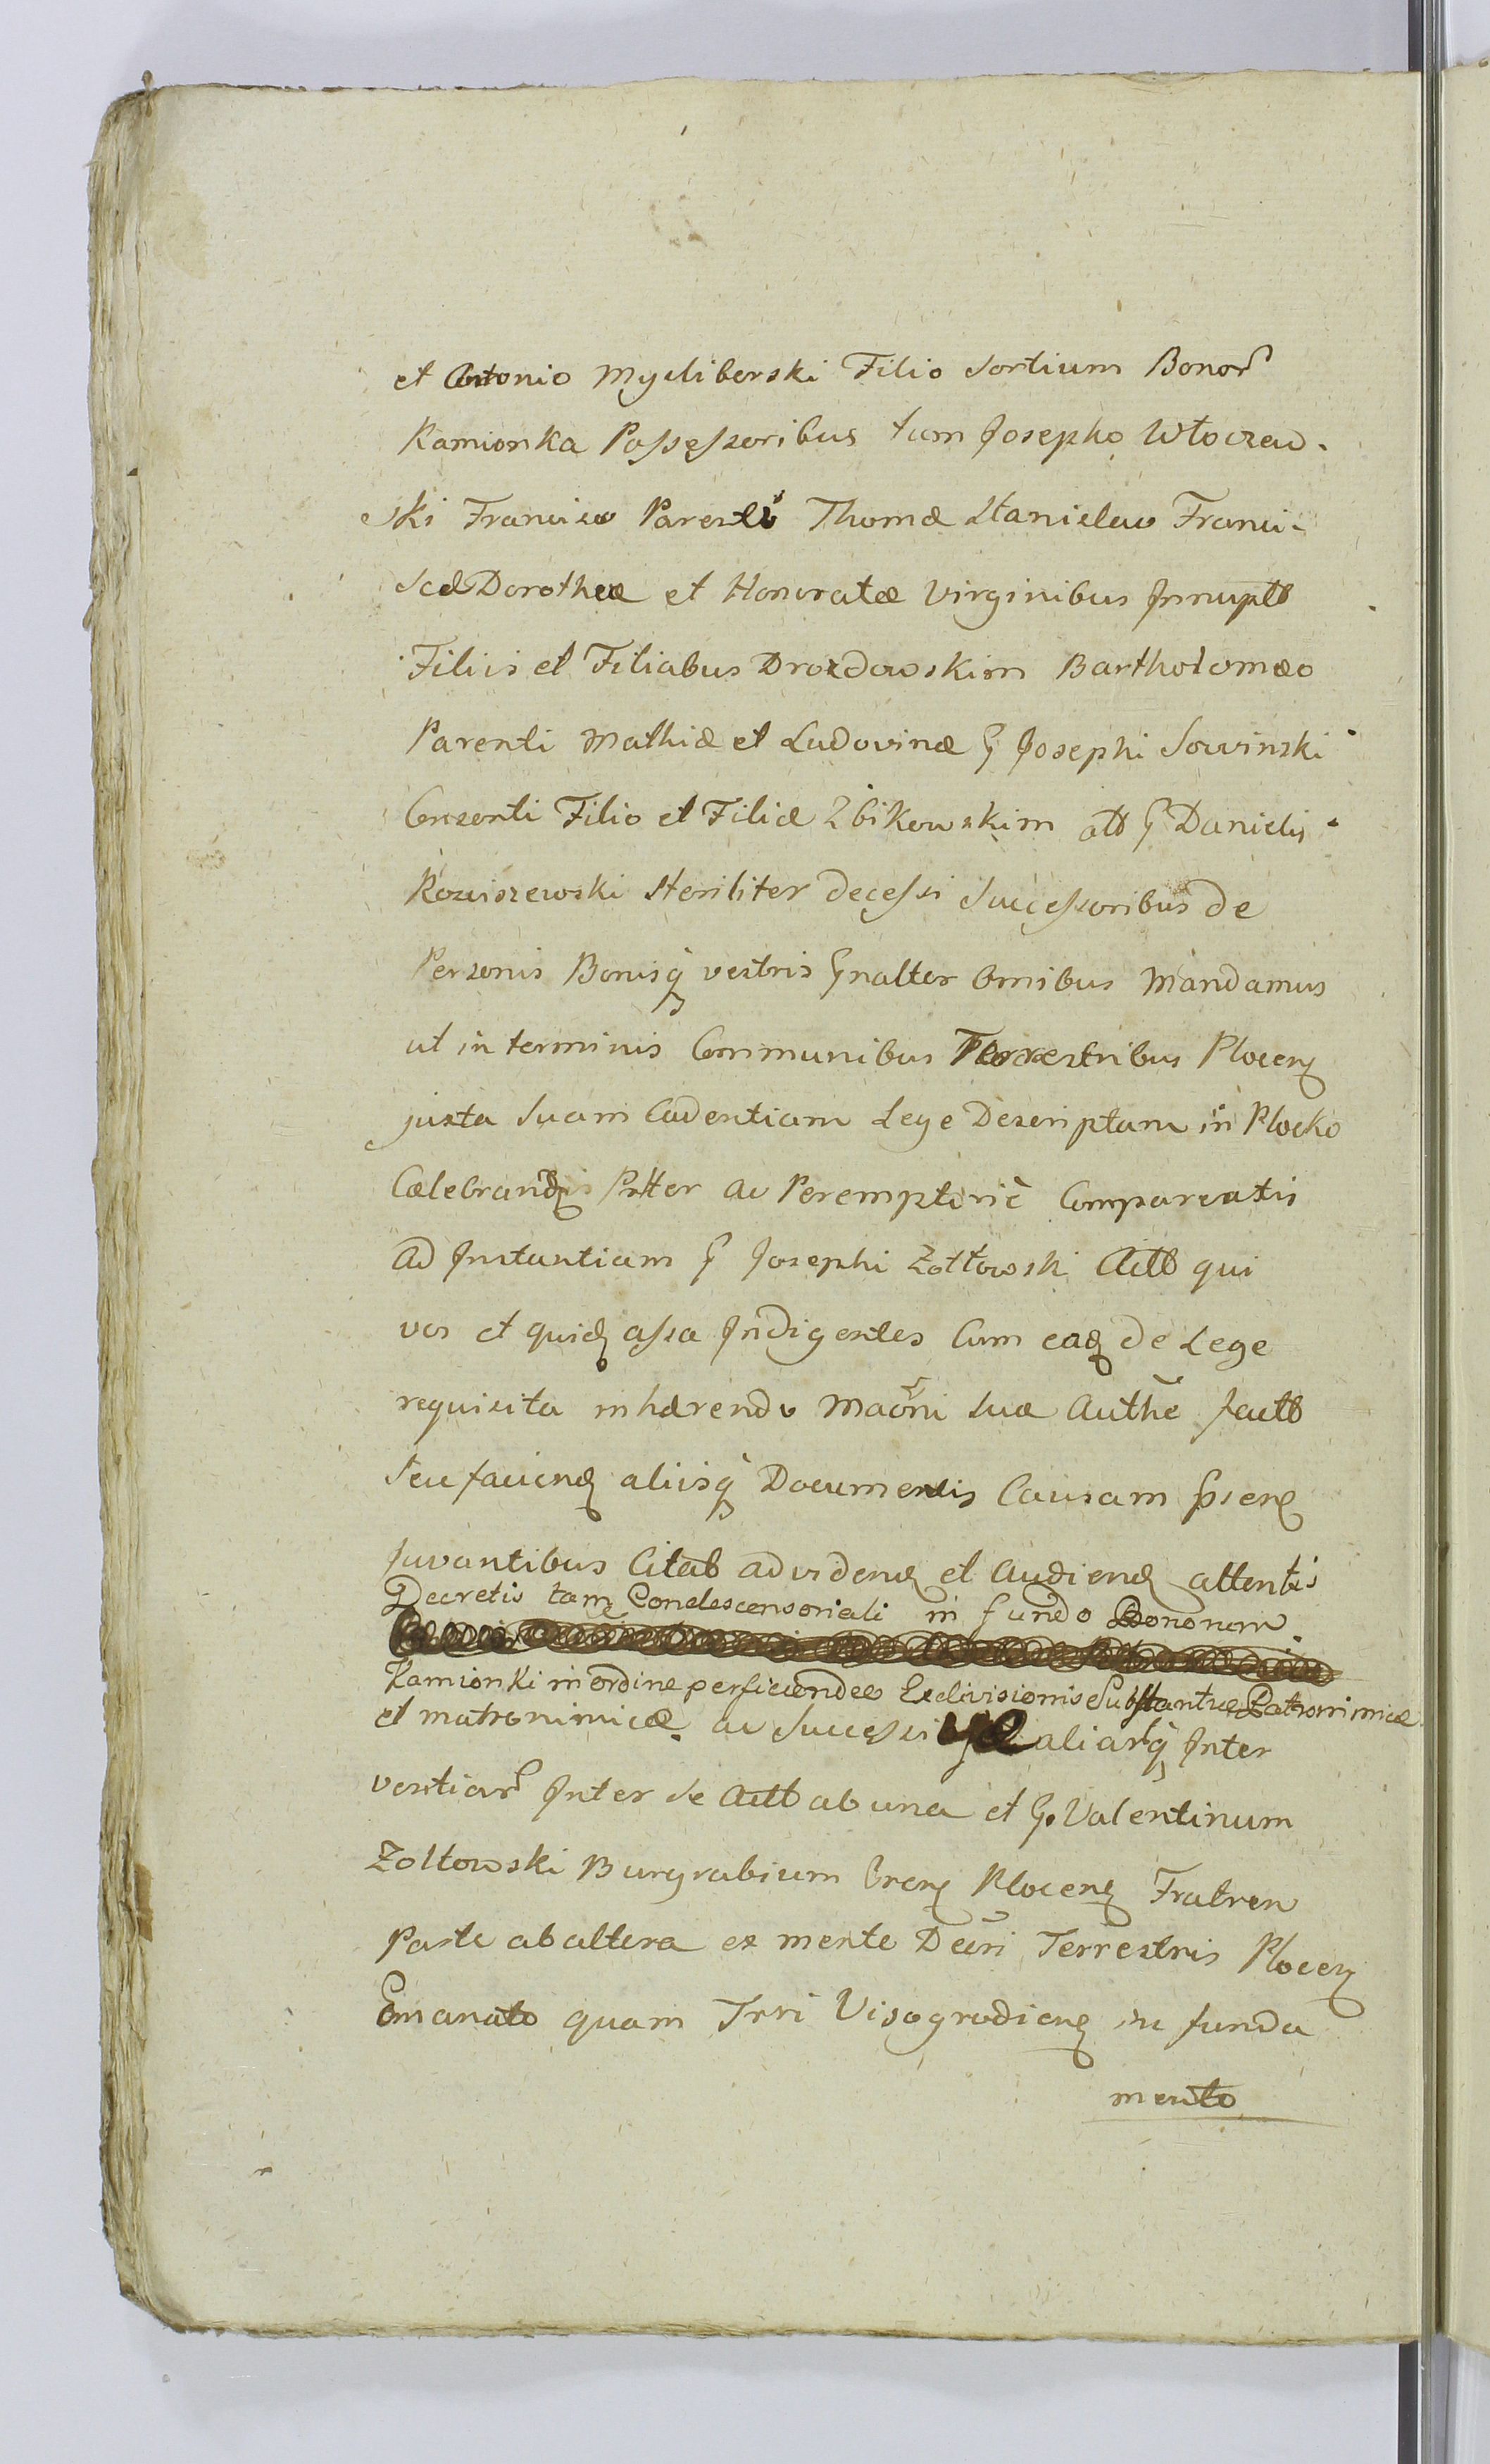 et Antonio Mysliborski Filio Sortium Bonor
Kamionka Possessoribus tum Josepho Wtoczew-
ski Francisco Parenti Thomæ Stanislao Franci-
scæ Dorotheæ et Honoratæ Virginibus Innupt
Filiis et Filiabus Drozdowskim Bartholomæo
Parenti Mathiæ et Ludovinæ G Josephi Sowinski
Consorti Filio et Filiæ Zbikowskim att G Danielis
Steriliter decessi Successoribus de
Personis Bonisq vestris Gnalter Omnibus Mandamus
ut in terminis Communibus Terrestribus Plocen
juxta Suam Cadentiam Lege Descriptam in Plocko
Cælebrand Ptter ac Peremptorie Compareatis
ad Instantiam G Josephi Zołtowski Act qui
vos et quid assa Indigentes Cum ead de Lege
requisita inhærendo Maoni Suæ Authe fact
Seu faciend aliisq Documentis Causam psen
Juvantibus Citat ad vidend et Audiend attentis
Decretis tam Condescensoriali in fundo Bonorum
Kamionki in ordine perficiendæ Exdivisionis Substantiæ Patrimonicæ
et matronimicæ ac Successi aliarq Inter
ventiar Inter se Act ab una et G. Valentinum
Zoltowski Burgrabium Plocen Fratrem
Parte ab altera ex mente Decri Terrestris Plocen
Emanato quam Trri Visogrodien in funda
mento